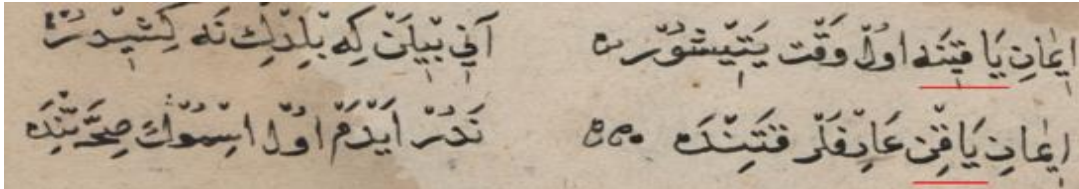 اِيمَانِ يَاقِينَه اوُلْ وَقْت يَتِيشُوُرْ آنِي بِيلَنْ كِه بِلْدِكِ نَه كِشِيدُرْ
اِيمَانِ يَاقِنْ عَارِفلَرْ قَتِنْدَه نَدُرْ اَيْدَمْ اوُلْ صِحَّتِنْدَه